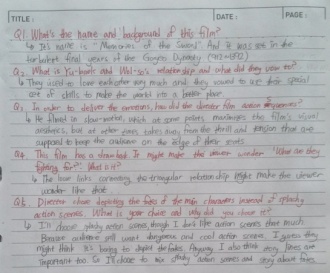 TITLE :
DATE :
PAGE :
Q1. What's the name and background of this film?
↳ It's name is "Memories of the Sword". And it was set in the
turbulent final years of the Goryeo Dynasty
Q2. What is Yu-baek and Wol-so's relationship and what did they vow to?
↳ They used to love each other very much and they vowed to use their special
set of skills to make the world into a better place.
Q3. In order to deliver the emotions, how did the director film action sequences?
↳ He filmed in slow-motion, which at some points maximizes the film's visual
aesthetics, but at other ears takes away from the thrill and tension that are
supposed to keep the audience on the edge of their seats.
Q4. This film has a drawback. It might make the viewer wonder "What are they
fighting for?" What is it?
↳ The love links connecting the triangular relationship might make the viewer
wonder like that.
Q5. Director chose depicting the fates of the main characters instead of splashy
action scenes. What is your choice and why did you have it?
↳ I'll choose splashy action scenes though I don't like action scenes that much.
Because audience still want dangerous and cool action scenes. I guess they
might think it's boring to depict the fates. Anyway, I also think story lines are
important too. So I'll choose to mix splashy action scenes and story about fates.